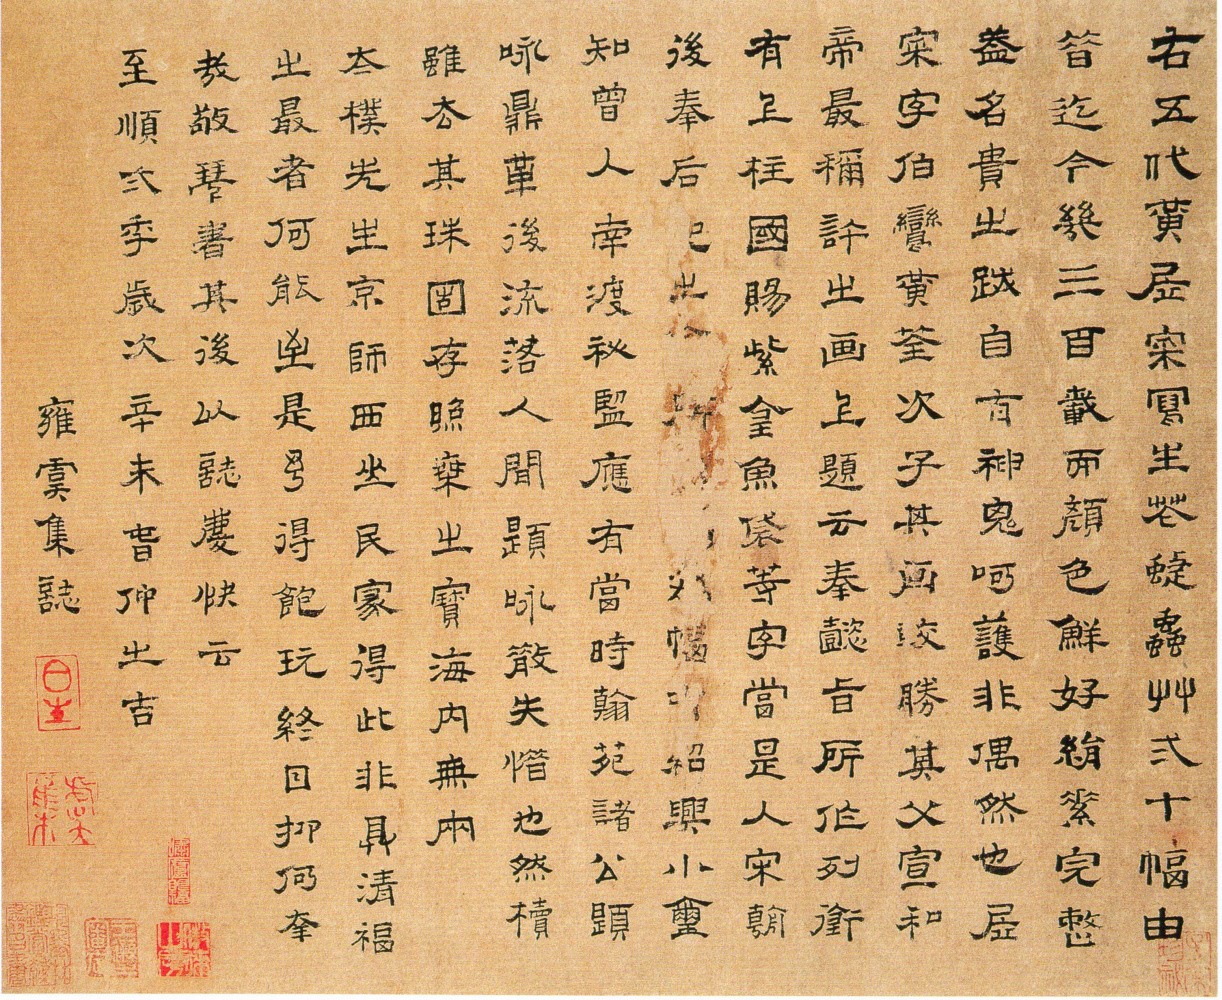 右五代黃居寀寫生花蜨蟲艸弍十幅由
昔迄今幾三百載而顏色鮮好絹素完整
蓋名貴之跋自有神鬼呵護非偶然也居
寀字伯鸞黃荃次子其画勝其父宣和
帝最稱許之画上題云奉懿旨所作列銜
有上柱國賜紫金魚袋等字當是人宋朝
後奉后之幅紹興小璽
知曾人南渡祕監應有當時翰苑諸公題
咏鼎革後流落人間題咏散失惜也然櫝
雖去其珠固存照乘之寶海內無兩
太樸先生京師西坐民家得此非具清福
之最者何能是得飽玩終日抑何幸
哉敬琴書其後以誌慶快云
至順弍季歲次辛未春仲之吉
雍虞集誌